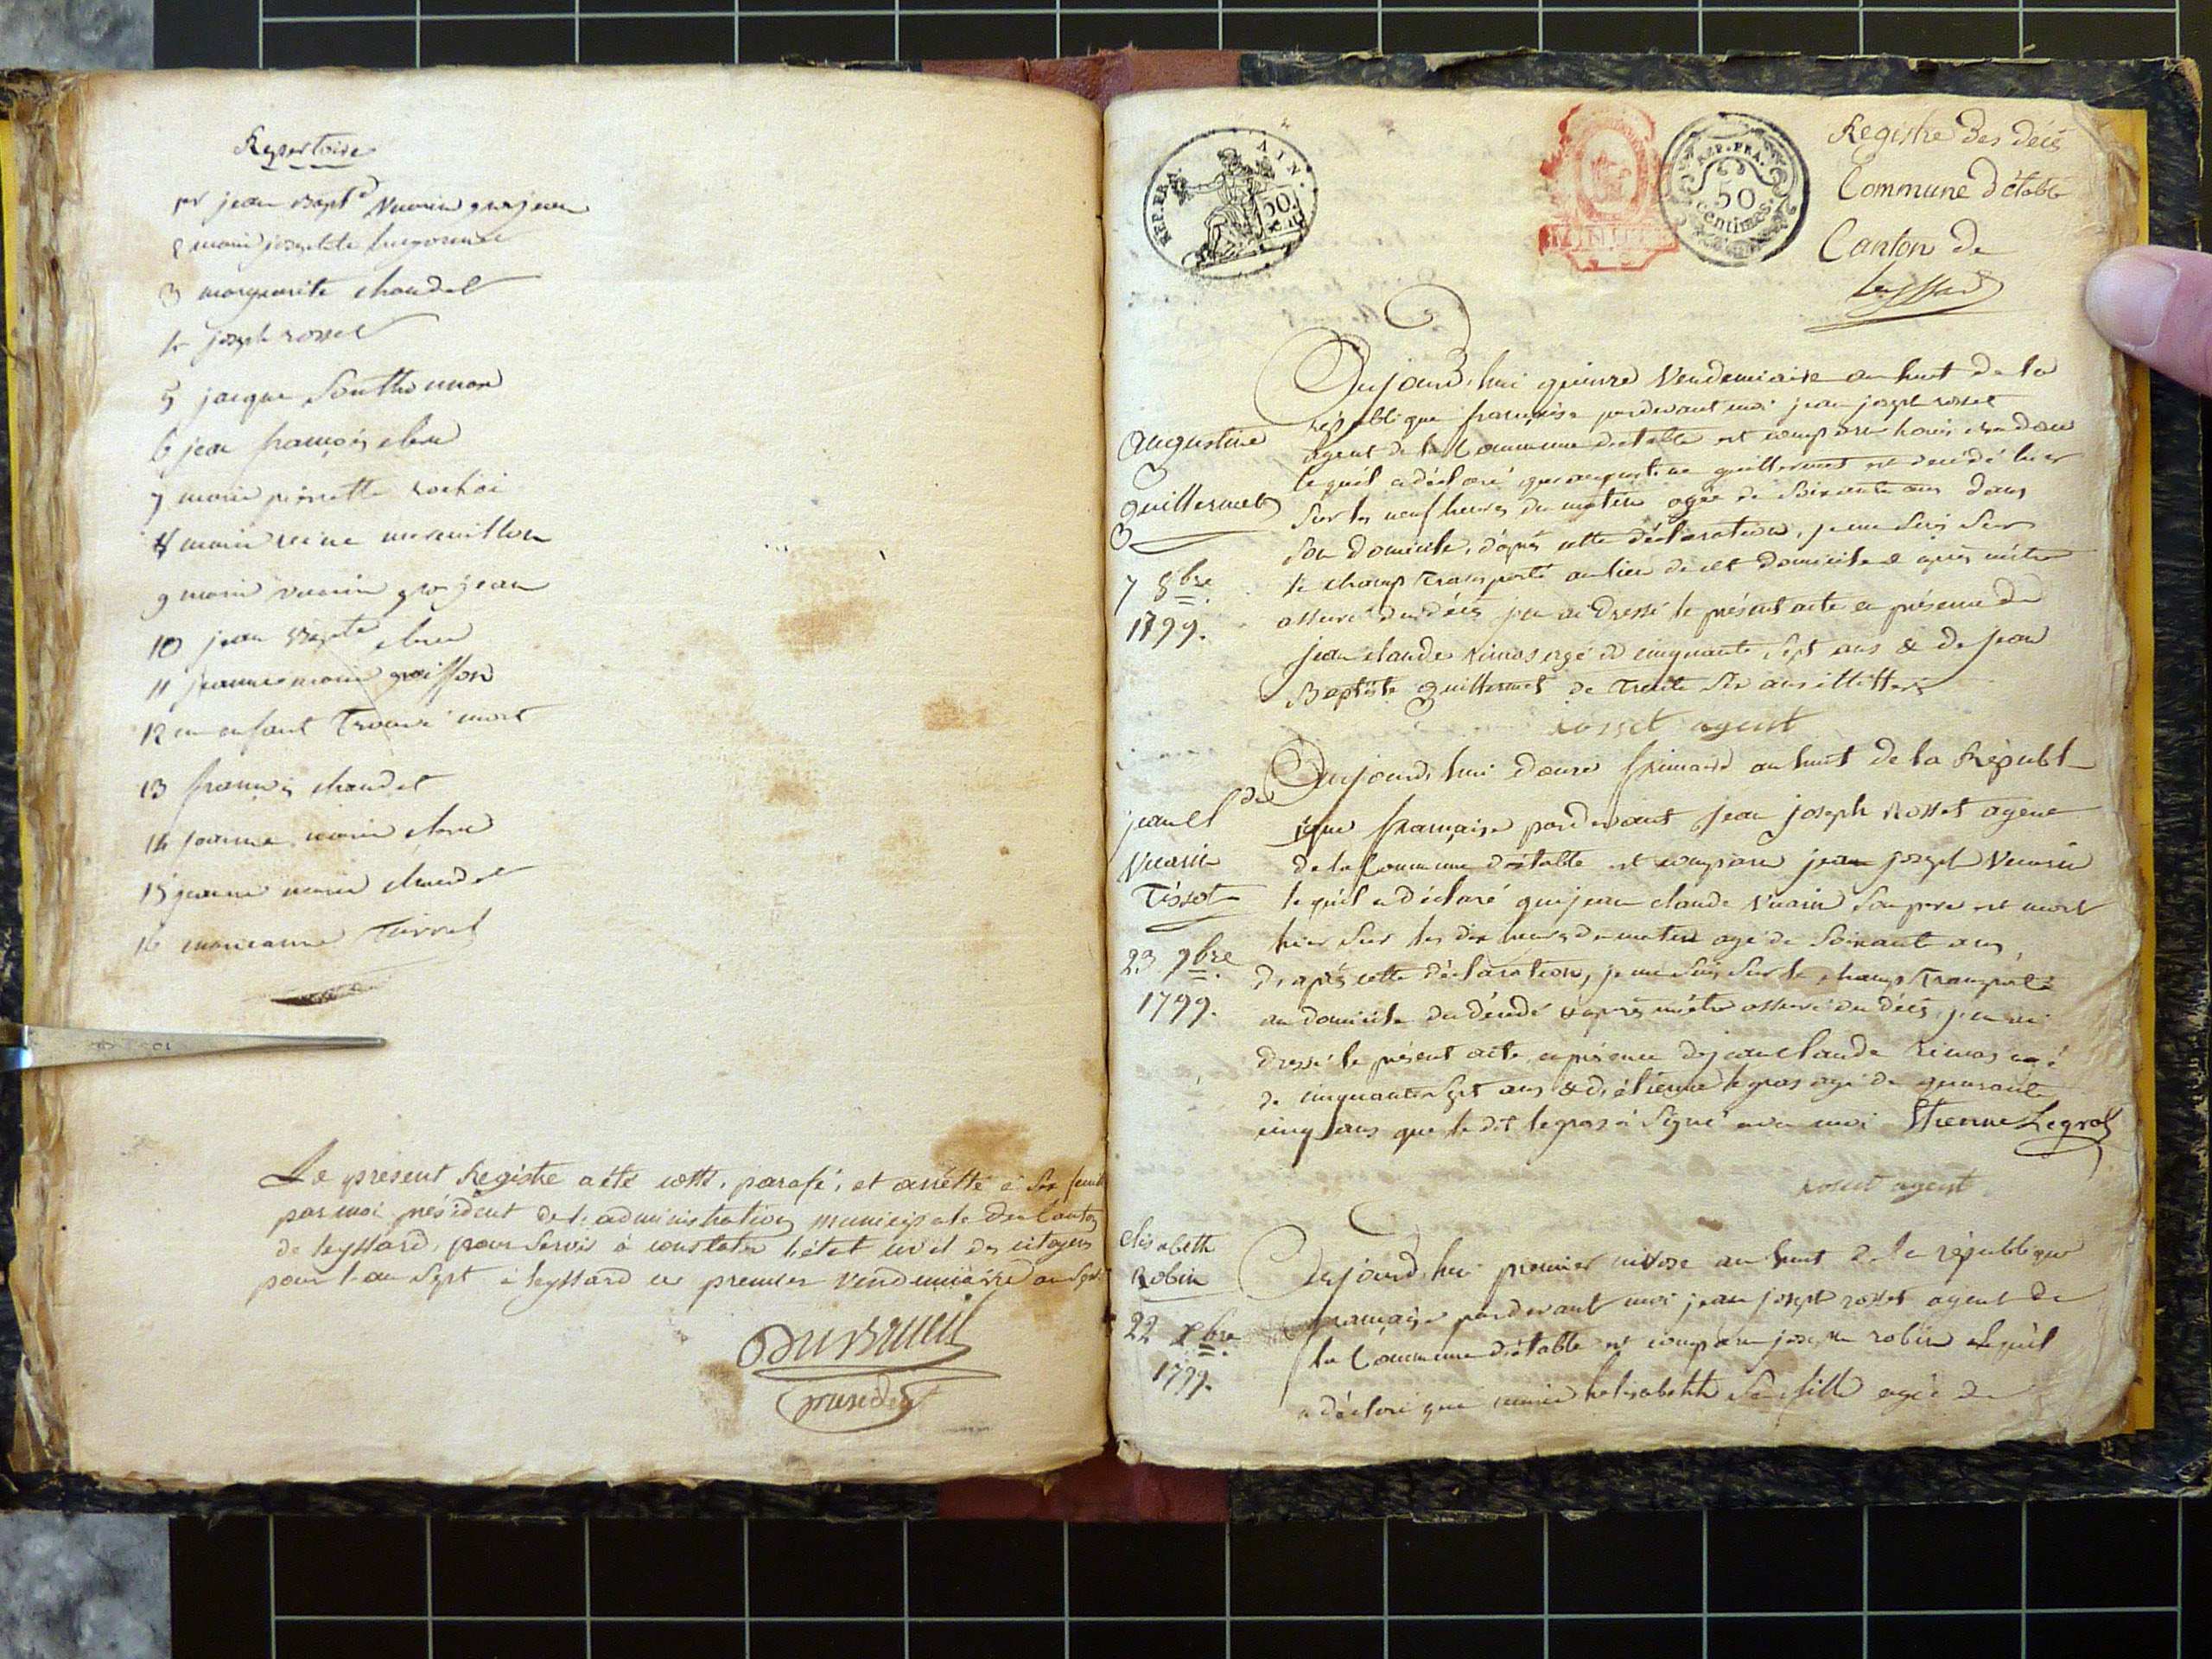 Repertoire
1er jean Bapte Vuarin grosjean
2 marie josephte
3 marguerite chaudet
4 joseph rosset
5 jacque Southonnax
6 jean françois
7 marie pierrette
8 marie reine
9 marie vuarin grosjean
10 jean Bapte
11 jeanne marie goiffon
12 un enfant Trouvé mort
13 françois chaudet
14 jeanne marie
15 jeanne marie chaudet
16 marianne
Le present Registre a été cotté, parafé, et arrétté à six feuil
par moi président de l'administration municipale du Canton
de leyssard, pour servir à constater l'état civil des citoyens
pour l'an sept à leyssard ce premier vendemiaire an sept
Dubreuil
president
REP. FRA. AIN.
50
REP. FRA.
50
centimes.
Registre des décés
Commune d'étable
Canton de
leyssard
Augustine
guillermet
7 8bre
1799.
Aujourd'hui quinze Vendemiaire an huit de la
république française pardevant moi jean joseph rosset
agent de la Commune d'etable est comparu
lequél a déclaré que augustine guillermet est decédé hier
sur les neuf heures du matin agée de soixante ans dans
son domicile, d'aprés cette déclaration, je me suis sur
le champ transporté au lieu de cet domicile & aprés métre
assuré du décés j'en ai dressé le présent acte en présence de
jean claude agé de cinquante sept ans & de jean
Baptiste guillermet de trente six ans illitterés
rosset agent
jean Cl de
Vuarin
Tissot
23 9bre
1799.
Aujourd'hui douze frimaire an huit de la Républ-
ique française pardevant jean joseph Rosset agent
de la Commune d'étable est comparu jean joseph Vuarin
lequél a déclaré que jean claude Vuarin son pere est mort
hier sur les dix heures du matin agé de soixante ans,
d'aprés cette déclaration, je me suis sur le champ transporté
au domicile du décédé & aprés métre assuré du décés j'en ai
dressé le présent acte en présence de jean claude agé
de cinquante sept ans & d'étienne legros agé de quarante
cinq ans que le dit legros à signé avec moi Etienne Legros
rosset agent
elisabeth
Robin
22 Xbre
1799.
Aujourd'hui premier nivose an huit de la république
française pardevant moi jean joseph rosset agent de
la Commune d'étable est comparu joseph robin lequél
a déclaré que marie helisabethh sa fille agée de